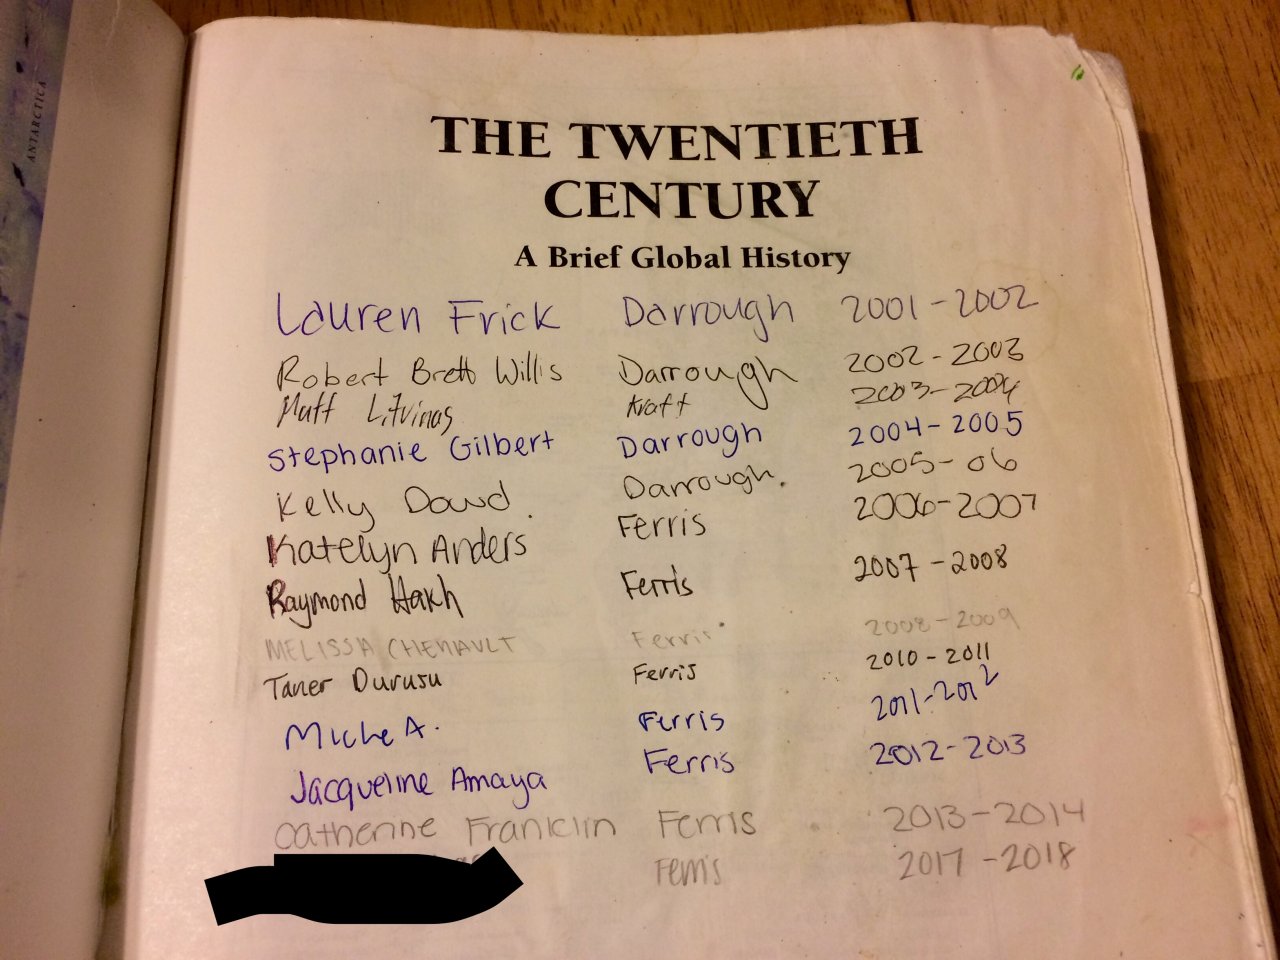 ANTARCTICA
THE TWENTIETH
CENTURY
A Brief Global History
Lauren Frick Darrough 2001-2002
Robert Brett Willis Darrough 2002-2003
Matt Litvinas Kraft 2003-2004
Stephanie Gilbert Darrough 2004-2005
Kelly Dowd Darrough. 2005-06
Katelyn Anders Ferris 2006-2007
Raymond Hakh Ferris 2007-2008
MELISSA CHENAULT Ferris 2008-2009
Taner Durusu Ferris 2010-2011
Miche A. Ferris 2011-2012
Jacqueline Amaya Ferris 2012-2013
Catherine Franklin Ferris 2013-2014
Ferris 2017-2018